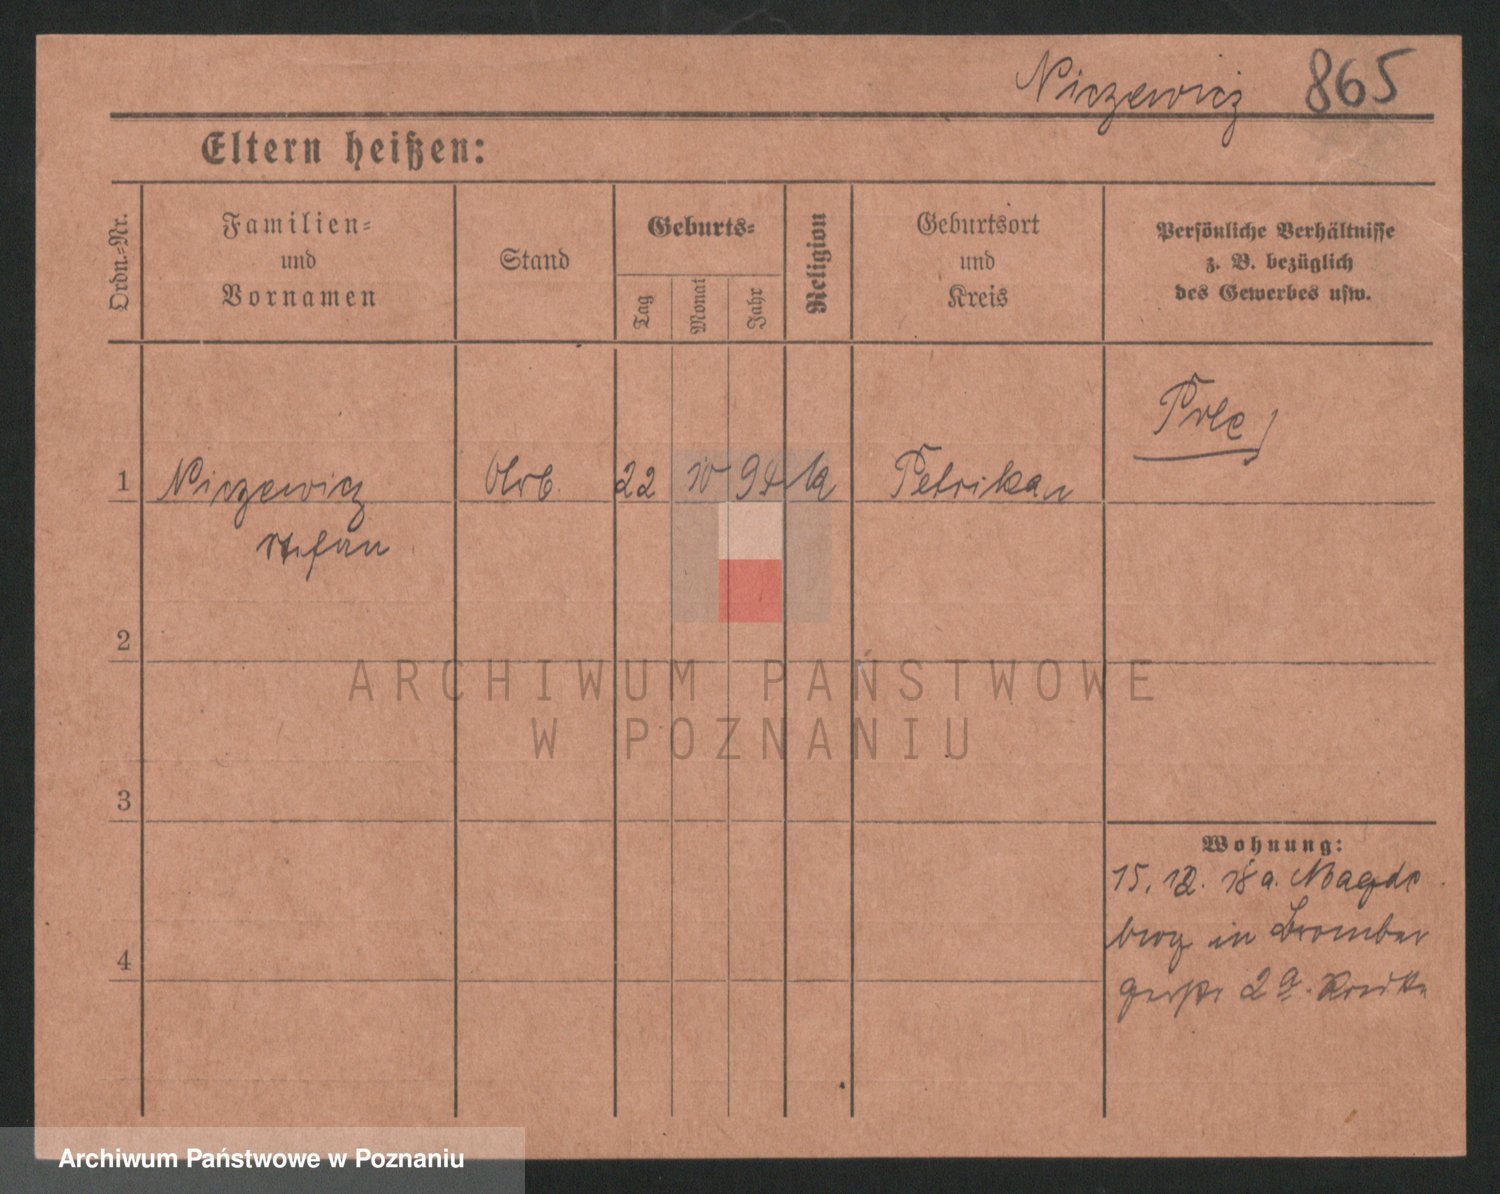 Niczewicz 865
Eltern heißen:
Ordn.-Nr.
Familien-
und
Vornamen
Stand
Geburts-
Tag
Monat
Jahr
Religion
Geburtsort
und
Kreis
Persönliche Verhältnisse
z. B. bezüglich
des Gewerbes usw.
Pole
1 Niczewicz Arb. 22 10 94 ka Petrikau
Stefan
2
3
4
Wohnung:
15. 12. 18 a. Magde
burg in Bromber
gerstr 2a.
ARCHIWUM PAŃSTWOWE
W POZNANIU
Archiwum Państwowe w Poznaniu